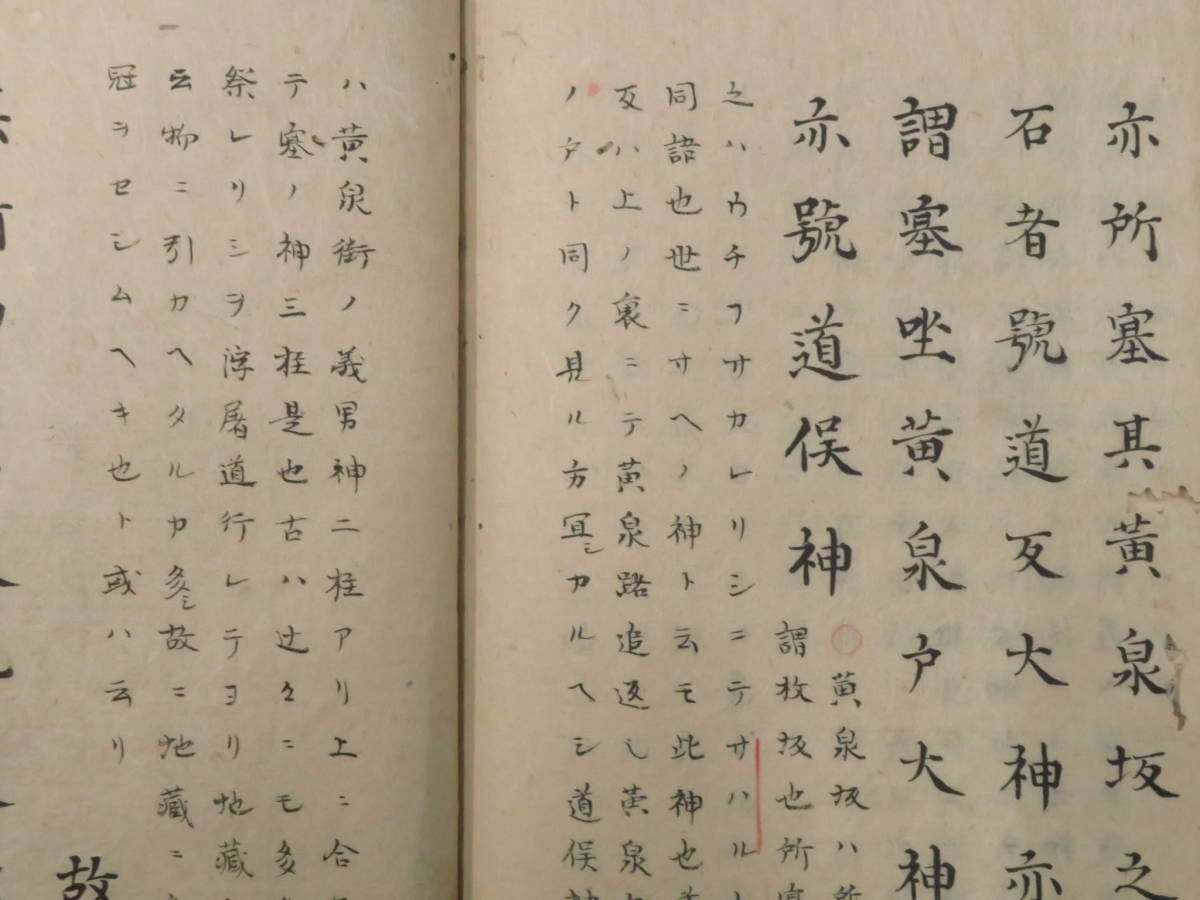 亦所塞其黄泉坂之
石者號道反大神亦
謂塞坐黄泉戸大神
亦號道俣神
黄泉坂ハ所
謂枚坂也所
之ハウチフサカレリシニテサハルト
同語也世ニサヘノ神ト云モ此神也
反ハ上ノ裏ニテ黄泉路追返し黄泉
ノ戸ト同ク見ル方冝シカルヘシ道俣神
ハ黄泉街ノ義男神二柱アリ上ニ合
テ塞ノ神三柱是也古ハ辻々ニモ多
祭レリシヲ浮屠道行レテヨリ地藏
云物ニ引カヘタルカ多シ故ニ地藏ニ
冠ヲセシムヘキ也ト或ハ云リ
故